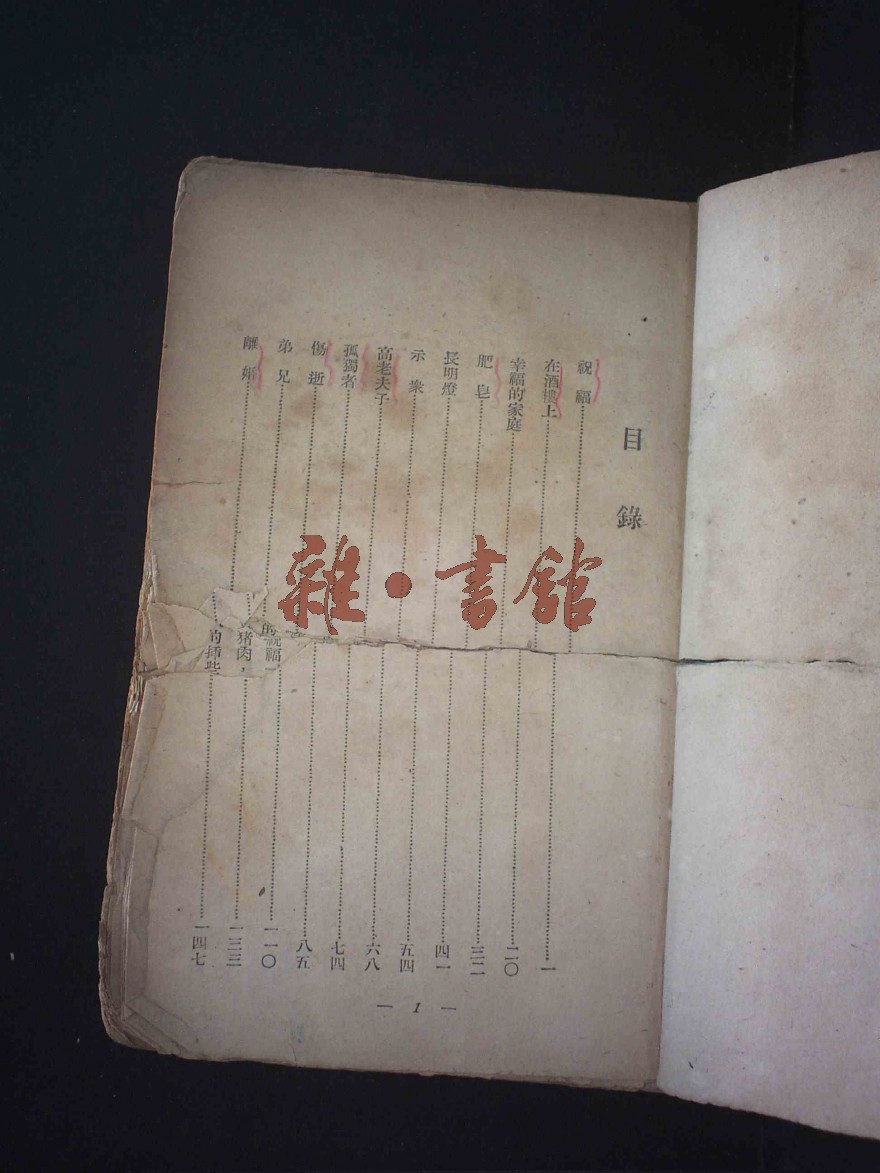 目錄
祝福……一
在酒樓上……二〇
幸福的家庭……三二
肥皂……四一
長明燈……五四
示衆……六八
高老夫子……七四
孤獨者……八五
傷逝……一一〇
弟兄……一三三
離婚……一四七
的祝福
猪肉，
的插些
— 1 —
雜·書館